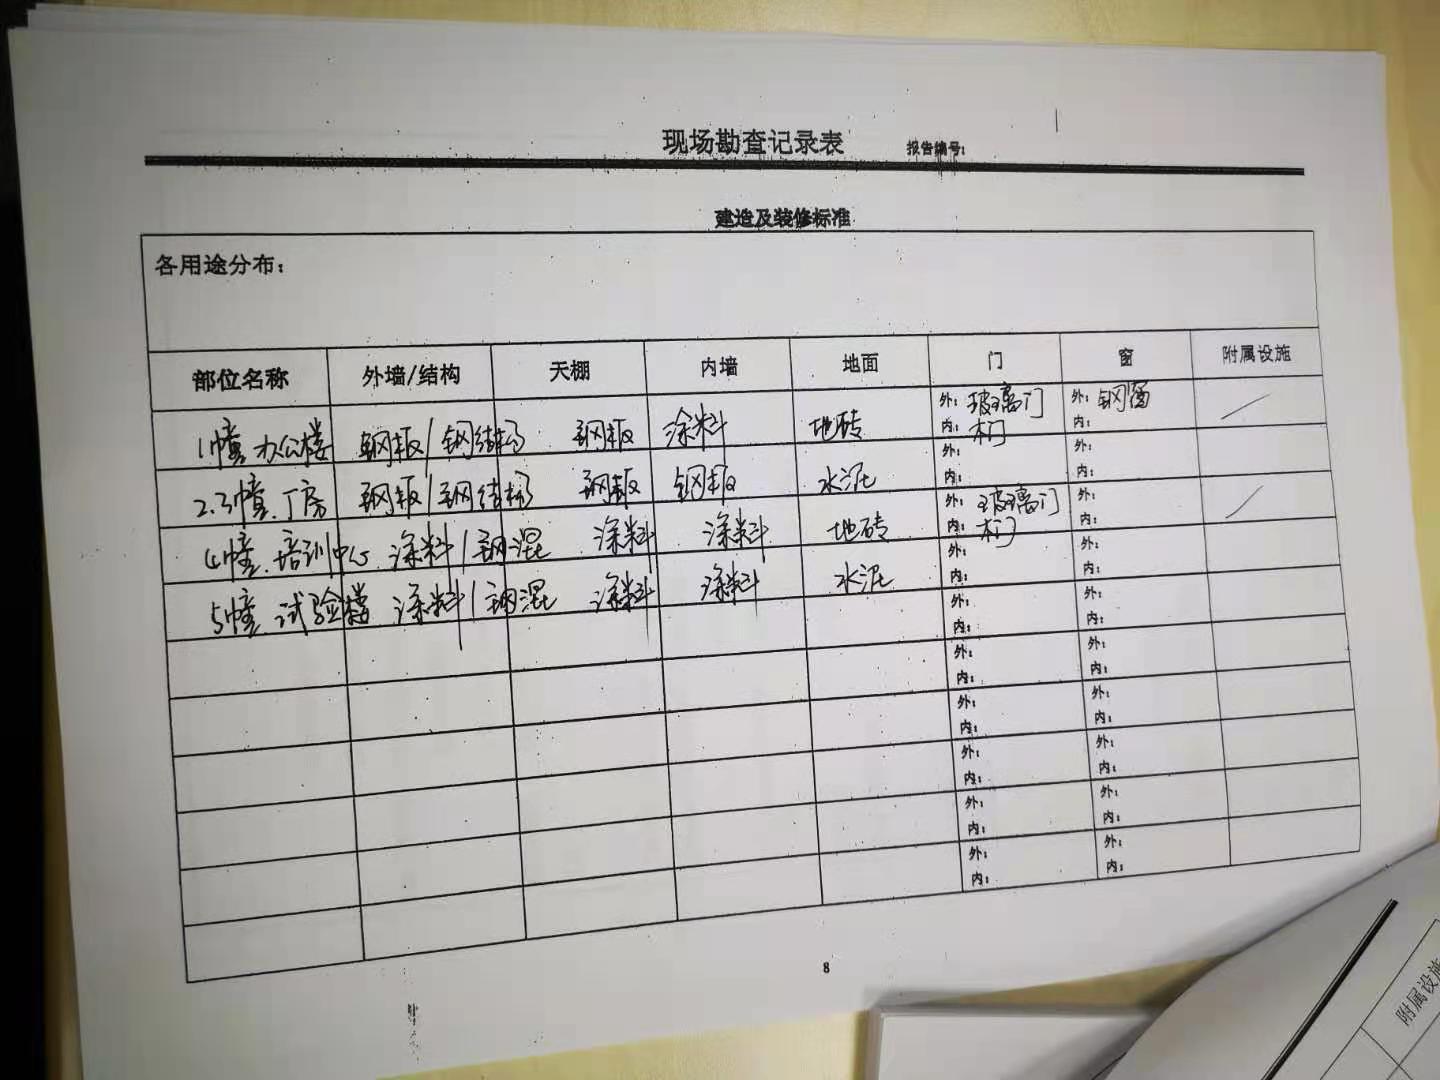 现场勘查记录表 报告编号：
建造及装修标准
各用途分布：
部位名称 外墙/结构 天棚 内墙 地面 门 窗 附属设施
1幢办公楼 钢板/钢结构 钢板 涂料 地砖 外：玻璃门 内：木门 外：钢窗 内： /
2.3幢.厂房 钢板/钢结构 钢板 钢板 水泥 外： 内： 外： 内：
4幢.培训中心 涂料/钢混 涂料 涂料 地砖 外：玻璃门 内：木门 外： 内： /
5幢.试验楼 涂料/钢混 涂料 涂料 水泥 外： 内： 外： 内：
外： 内： 外： 内：
外： 内： 外： 内：
外： 内： 外： 内：
外： 内： 外： 内：
外： 内： 外： 内：
外： 内： 外： 内：
8
附属设施